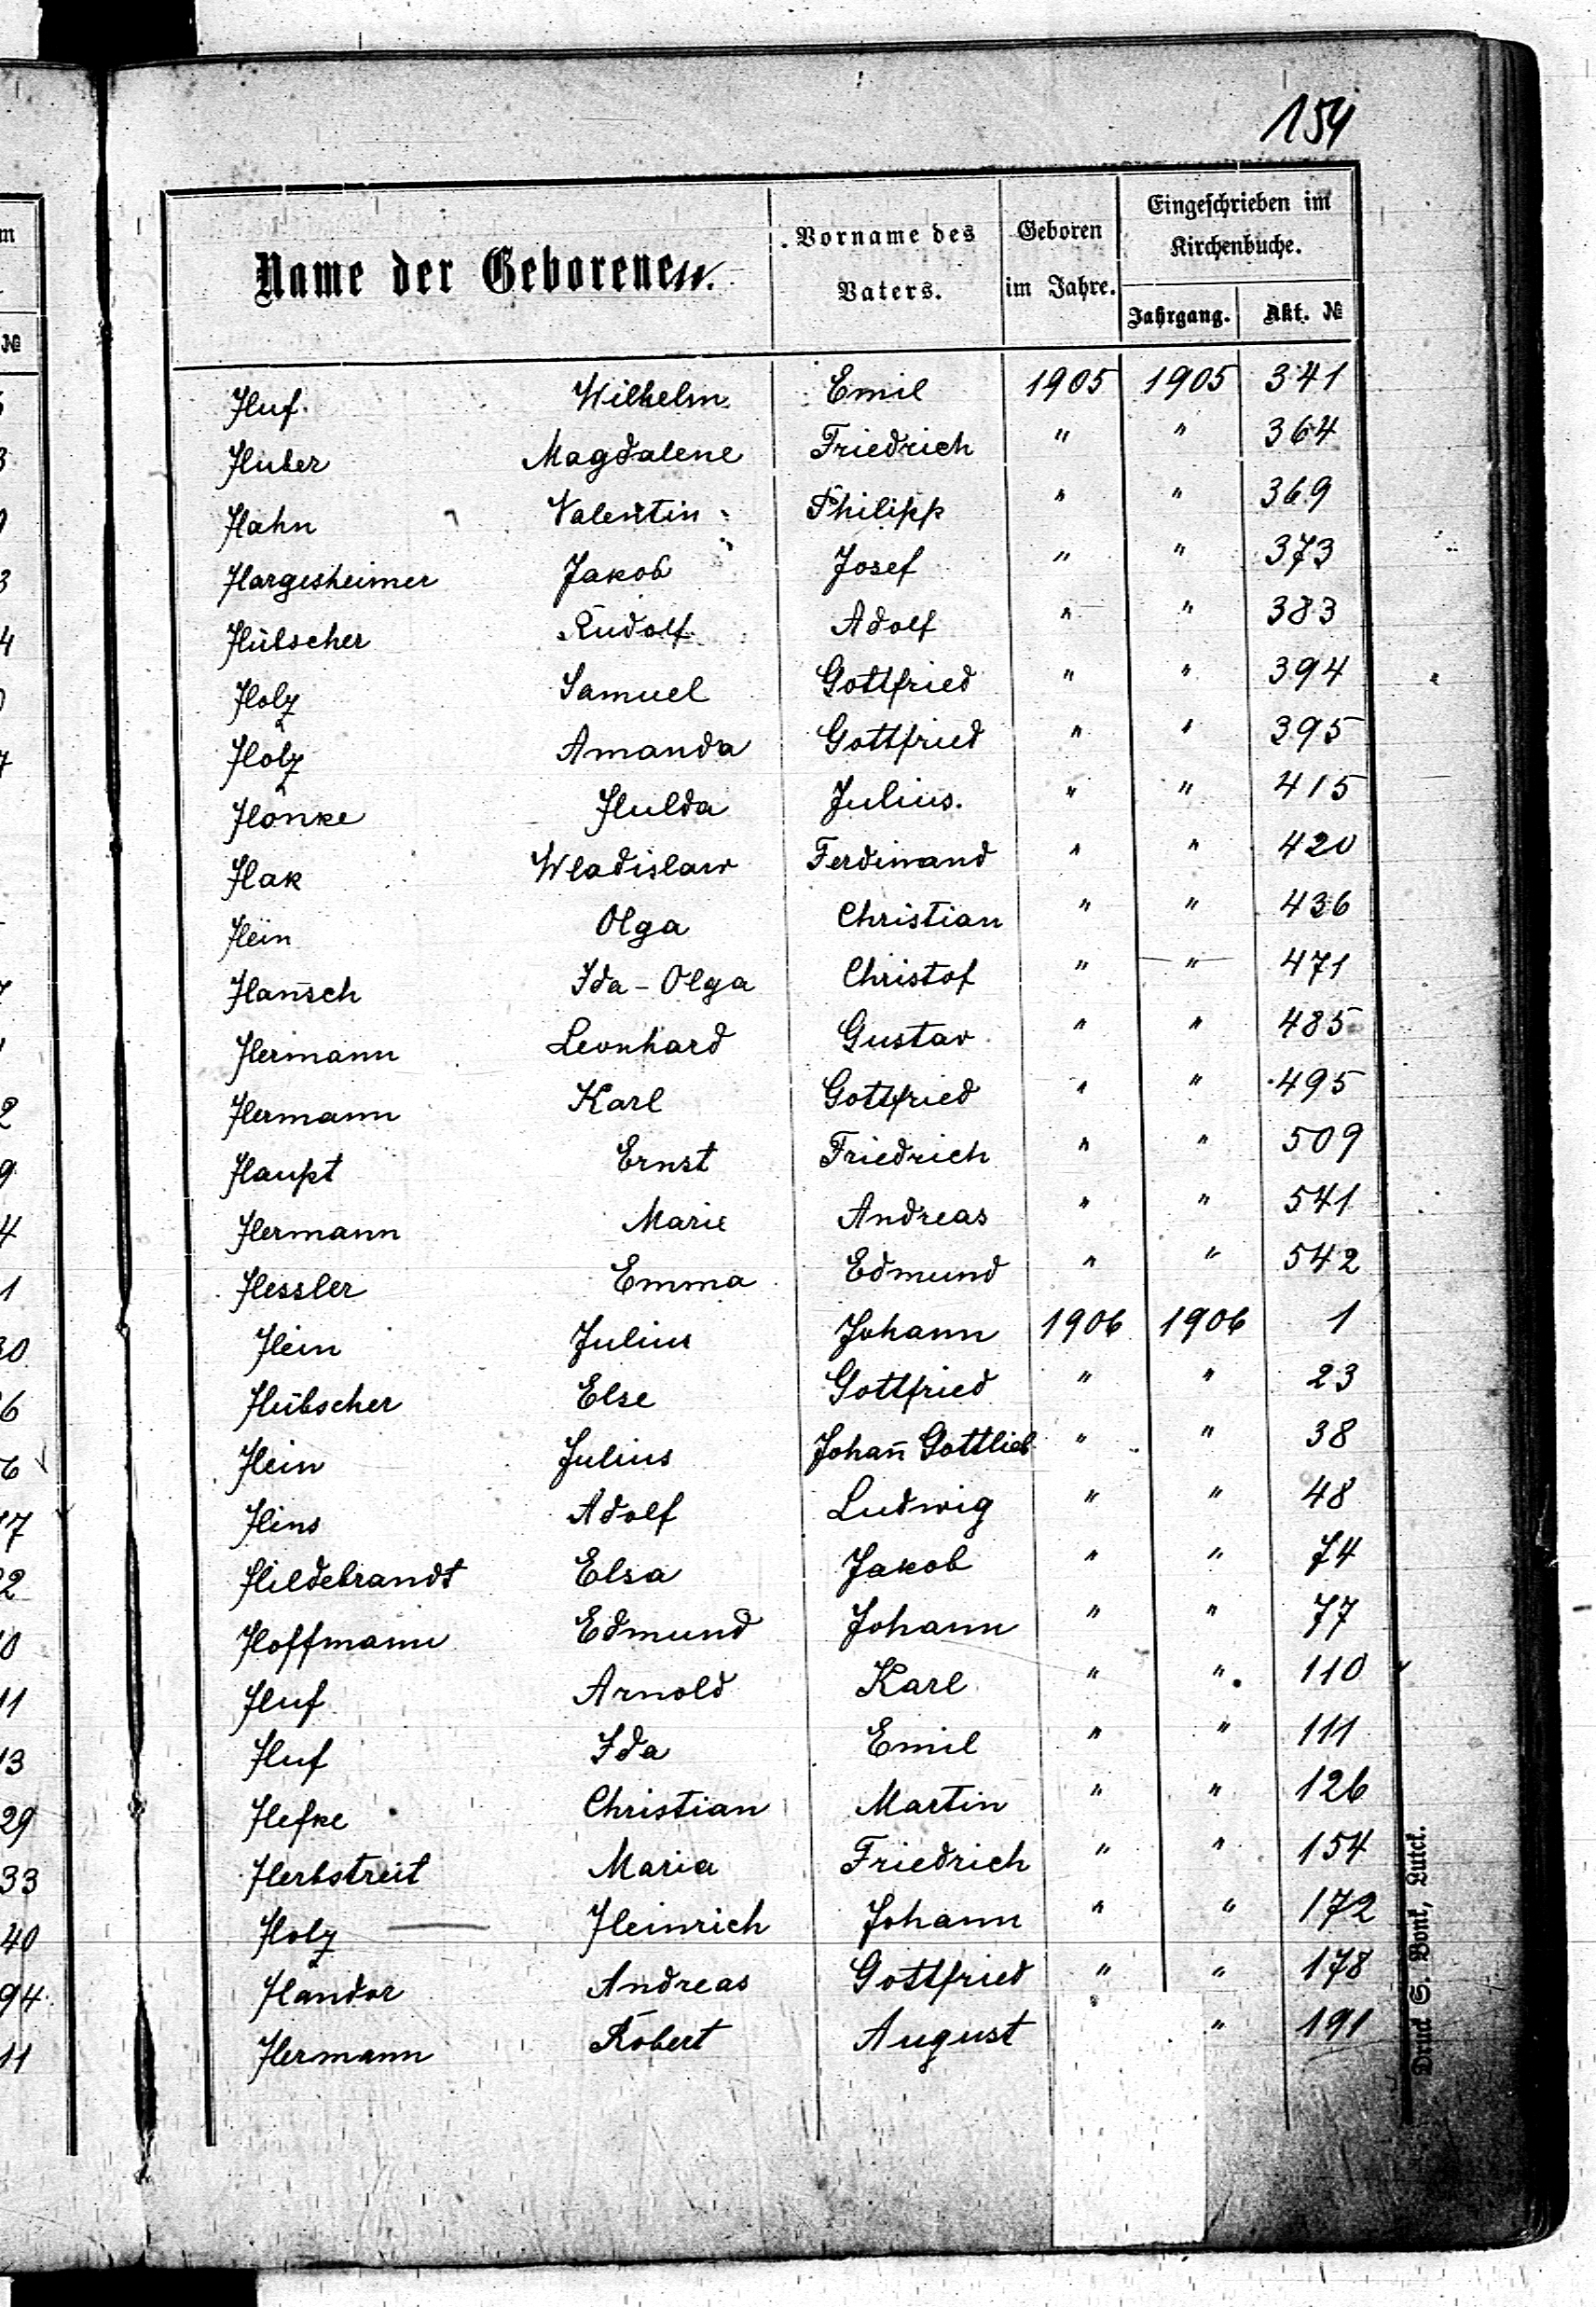 154
Name der Geborenen.
Vorname des Vaters.
Geboren im Jahre.
Eingeschrieben im Kirchenbuche.
Jahrgang. Akt. №
Huf. Wilhelm Emil 1905 1905 341
Huber Magdalene Friedrich " " 364
Hahn Valentin Philipp " " 369
Hargesheimer Jakob Josef " " 373
Hübscher Rudolf Adolf " " 383
Holz Samuel Gottfried " " 394
Holz Amanda Gottfried " " 395
Hönke Hulda Julius. " " 415
Hak Wladislaw Ferdinand " " 420
Hein Olga Christian " " 436
Hansch Ida-Olga Christof " " 471
Hermann Leonhard Gustav " " 485
Hermann Karl Gottfried " " 495
Haupt Ernst Friedrich " " 509
Hermann Marie Andreas " " 541
Hessler Emma Edmund " " 542
Hein Julius Johann 1906 1906 1
Hübscher Else Gottfried " " 23
Hein Julius Johan̄ Gottlieb " " 38
Hins Adolf Ludwig " " 48
Hildebrandt Elsa Jakob " " 74
Hoffmann Edmund Johann " " 77
Huf Arnold Karl " " 110
Huf Ida Emil " " 111
Hefke Christian Martin " " 126
Herbstreit Maria Friedrich " " 154
Holz Heinrich Johann " " 172
Handor Andreas Gottfried " " 178
Hermann Robert August " 191
Druck S. Bonk, Lutck.